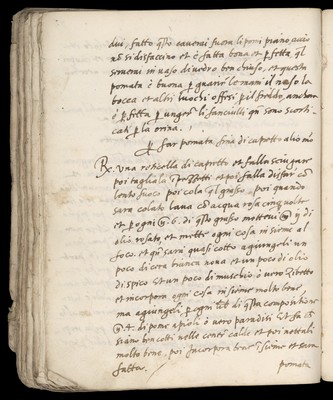 dui, fatto qsto caverai fuora li pomi piano, accio
nō si disfaccino et è fatta bona et pfetta, ql
serverai in vaso di vedro ben chiuso, et questa
pomata è buona p guarir le mani il naso la
bocca et altri luochi offesi p il freddo, anchora
è pfetta p unger li fanciulli qn sono scorti-
cati p la orina.
P far pomata fina di capretto alio mō
Rc. una reticolla di capretto et falla sciugare
poi tagliala in pezzetti et poi falla disfar cō
lento fuoco poi cola ql grasso, poi quando
sara colato lava cō acqua rosa cinq volte
et p ogni 6. di qsto grasso mettevi di
olio rosato, et mette ogni cosa insieme al
foco. et qn sara quasi cotto agiungeli un
poco di cera bianca nova et un poco di olio
di spico et un poco di muschio ò vero zibetto
et incorpora ogni cosa insieme molto bene,
ma agiungeli p ogni di qsta compositione
4. di pome apioli ò vero paradisi et fa che
siano ben cotti nelle cenere calde et poi
molto bene, poi incorpora bene insieme et sara
fatta.
pomata